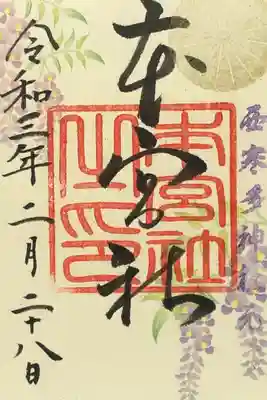 西寒多神社
本宮社
本宮社之印
令和三年二月二十八日